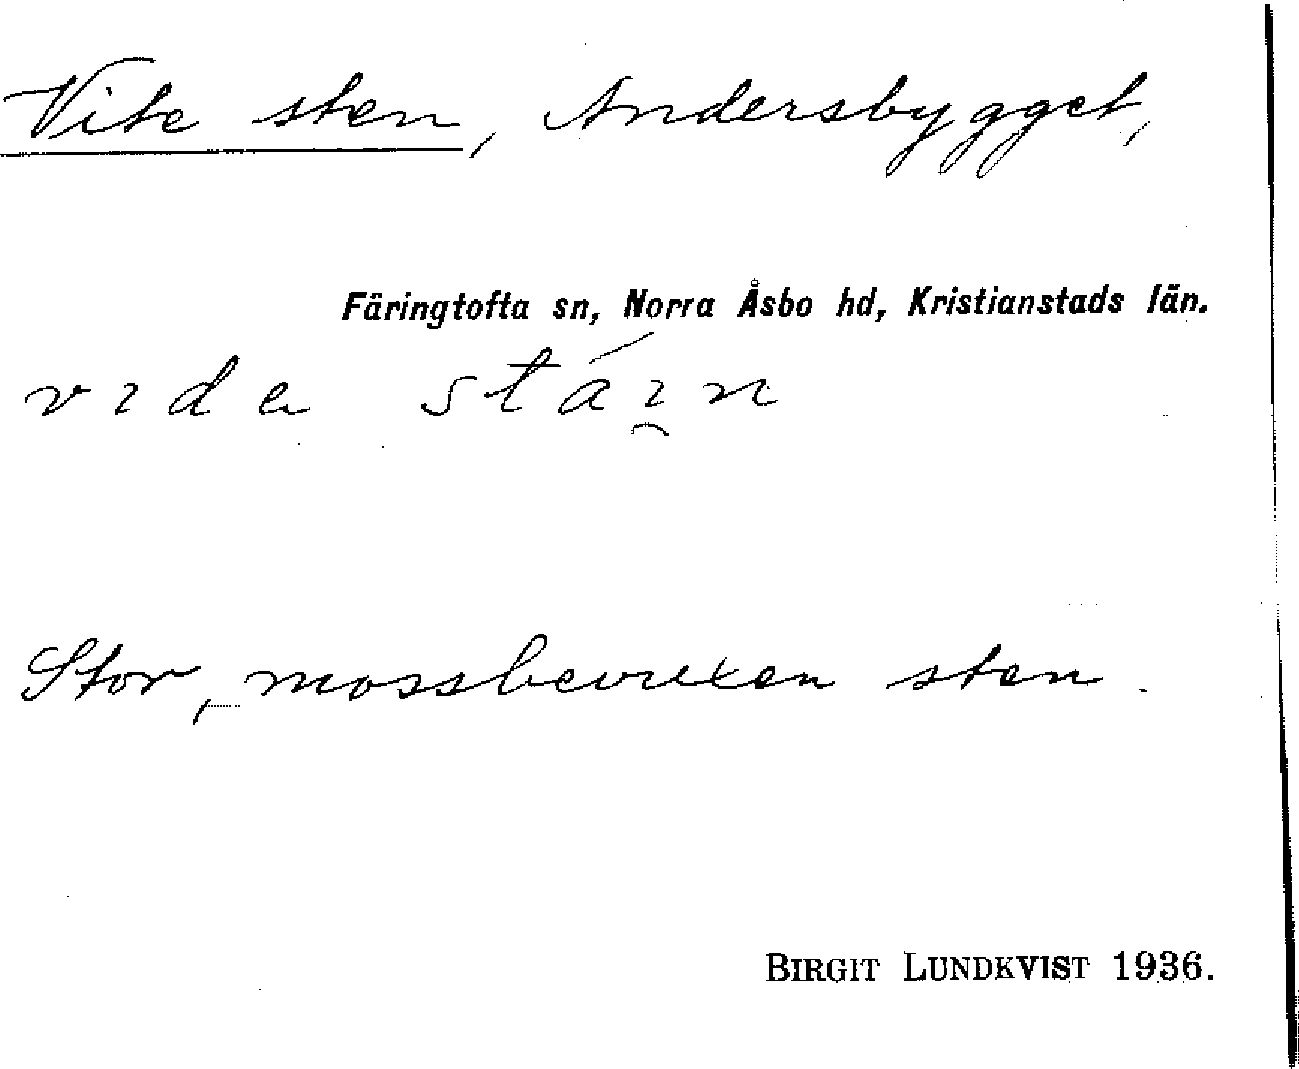 Vite sten, Andersbygget,
Färingtofta sn, Norra Åsbo hd, Kristianstads län.
vıdə stáı̯n
Stor, mossbevuxen sten.
BIRGIT LUNDKVIST 1936.